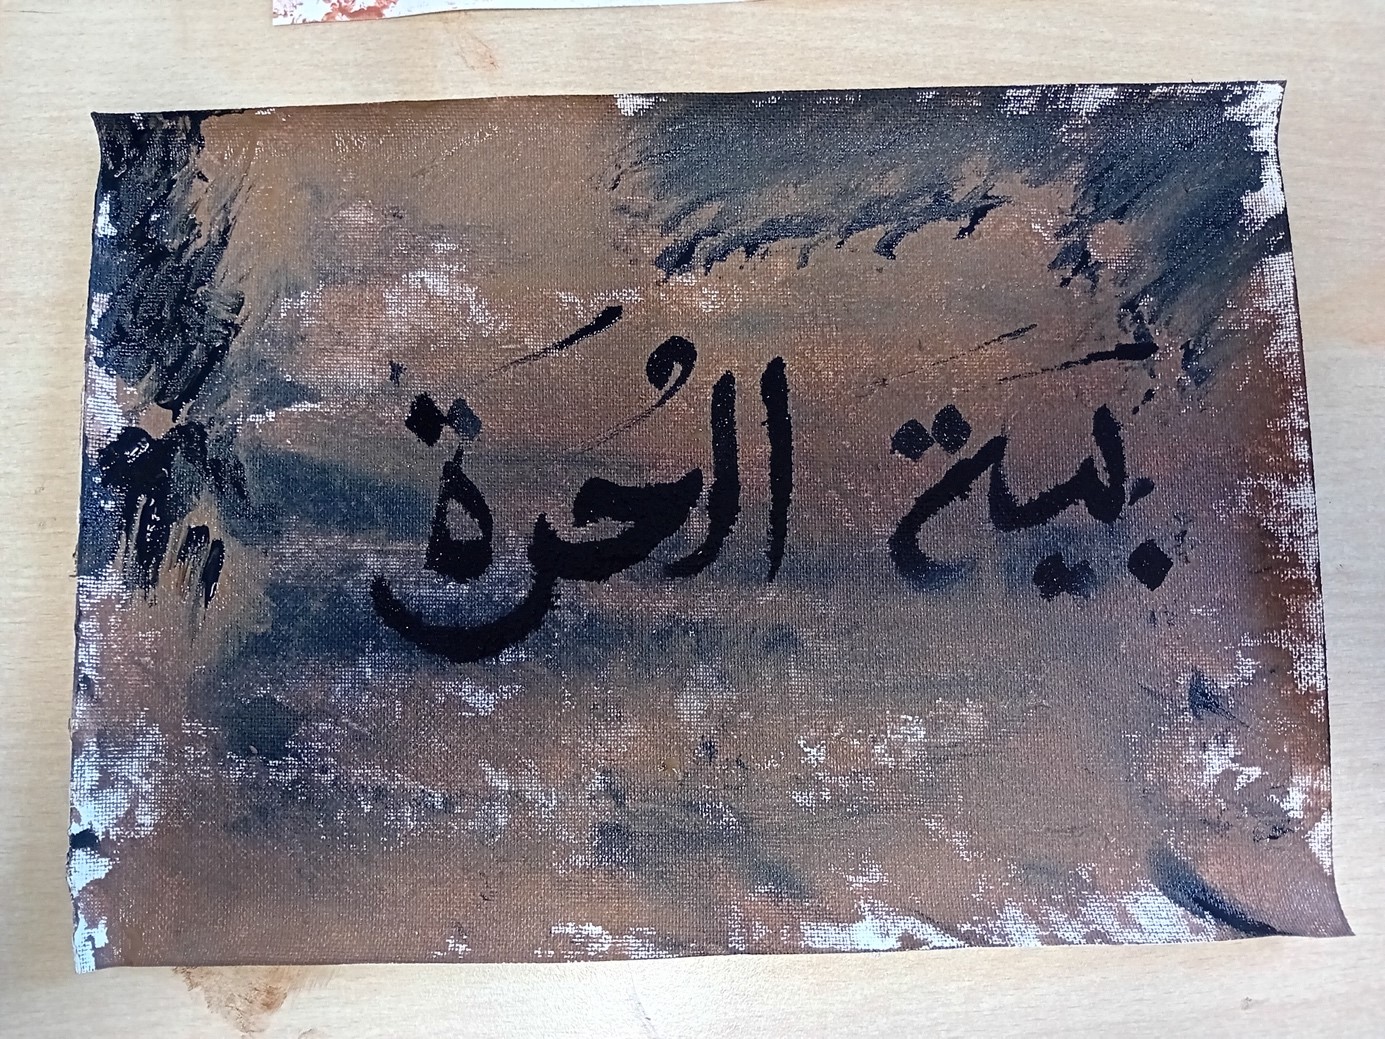 بَية الحُرَة